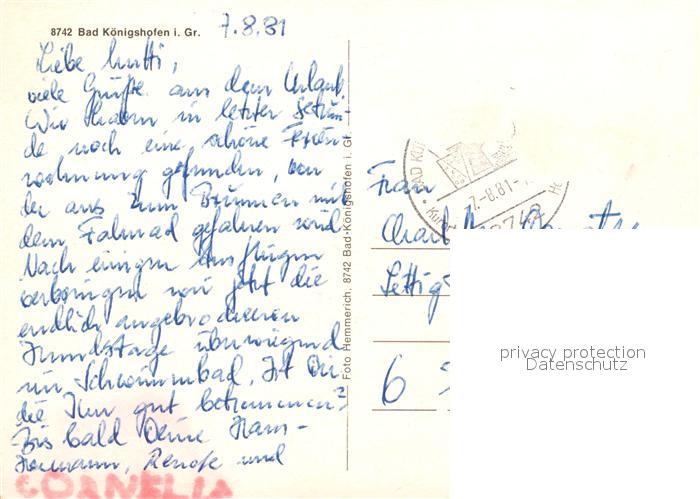 8742 Bad Königshofen i. Gr.
7.8.81
Liebe Mutti,
viele Grüße aus dem Urlaub.
Wir haben in letzter Sekun-
de noch eine schöne Ferien
wohnung gefunden, von
der aus zum Brunnen mit
dem Fahrrad gefahren wird
Nach einigen Ausflügen
verbringen wir jetzt die
endlich angebrochenen
Hundstage überwiegend
im Schwimmbad. Ist Dir
die Kur gut bekommen?
Bis bald Deine Hans-
Hermann, Renate und
CORNELIA
Foto Hemmerich, 8742 Bad-Königshofen i. Gf.
BAD KÖ
7.-8.81-
8742
Frau
6
privacy protection
Datenschutz